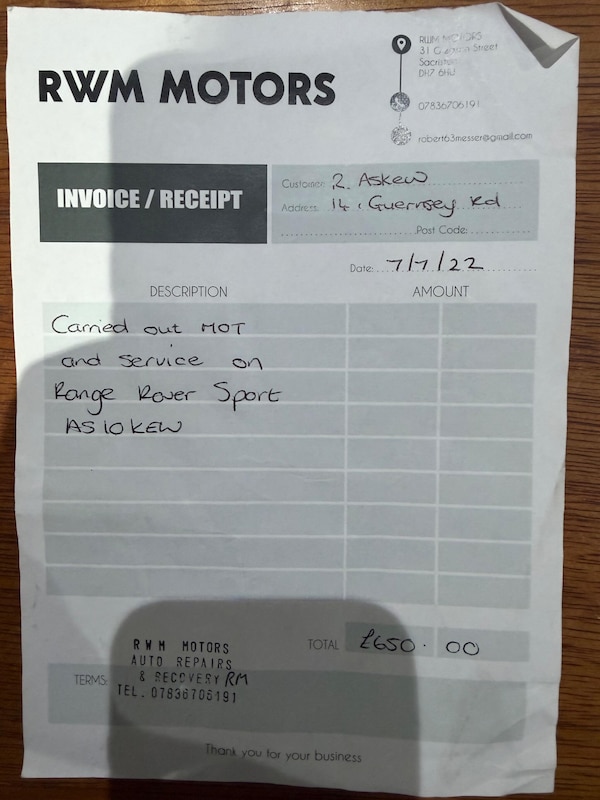 RWM MOTORS
RWM MOTORS
31 Street
Sacriston
DH7 6HU
07836706191
robert63messer@gmail.com
INVOICE / RECEIPT
Customer: R. Askew
Address: 14, Guernsey Rd
Post Code:
Date: 7/7/22
DESCRIPTION AMOUNT
Carried out MOT
and service on
Range Rover Sport
AS10KEW
TOTAL £650.00
RWM MOTORS
AUTO REPAIRS
& RECOVERY RM
TERMS:
TEL. 07836706191
Thank you for your business